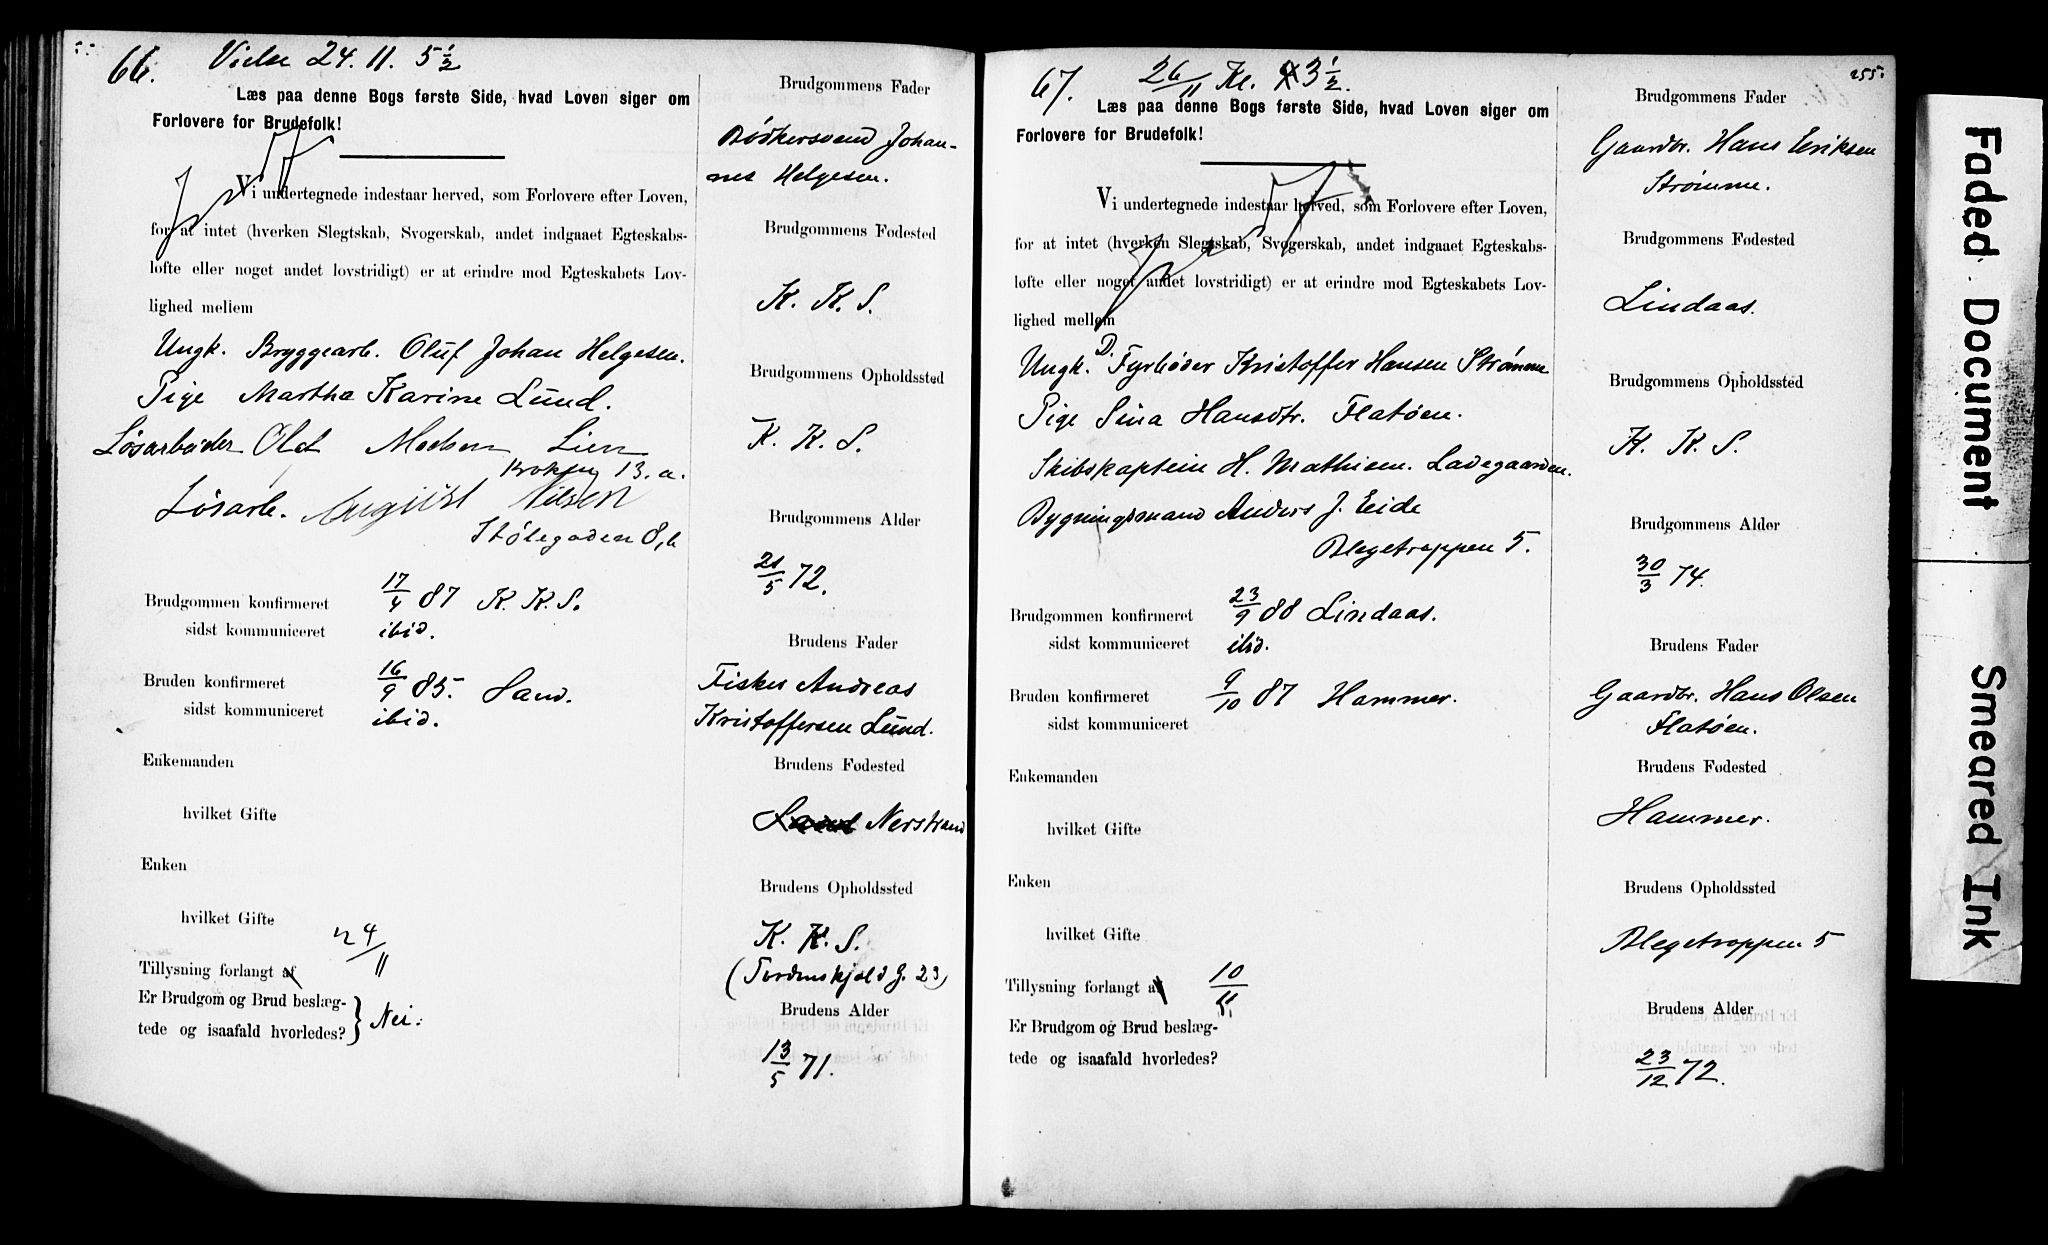 66. Vielse 24. 11. 5 1/2
Læs paa denne Bogs første Side, hvad Loven siger om
Forlovere for Brudefolk!
Vi undertegnede indestaar herved, som Forlovere efter Loven,
for at intet (hverken Slegtskab, Svogerskab, andet indgaaet Egteskabs-
løfte eller noget andet lovstridigt) er at erindre mod Egteskabets Lov-
lighed mellem
Ungk. Bryggearb. Oluf Johan Helgesen.
Pige Martha Karine Lund.
Løsarbeider Olai Madsen Lien
13. a.
Løsarb. August Nilsen
Stølegaden 8, b
Brudgommen konfirmeret 17/4 87 K. K. S.
sidst kommuniceret ibid.
Bruden konfirmeret 16/9 85. Sand.
sidst kommuniceret ibid.
Enkemanden
hvilket Gifte
Enken
hvilket Gifte
Tillysning forlangt af 4/11
Er Brudgom og Brud beslæg-
tede og isaafald hvorledes? } Nei.
Brudgommens Fader
Bødkersvend Johan-
nes Helgesen.
Brudgommens Fødested
K. K. S.
Brudgommens Opholdssted
K. K. S.
Brudgommens Alder
21/5 72.
Brudens Fader
Fisker Andreas
Kristoffersen Lund.
Brudens Fødested
Nerstrand
Brudens Opholdssted
K. K. S.
(Tordenskjold G. 23)
Brudens Alder
13/5 71.
255.
67. 26/11 Kl. 3 1/2.
Læs paa denne Bogs første Side, hvad Loven siger om
Forlovere for Brudefolk!
Vi undertegnede indestaar herved, som Forlovere efter Loven,
for at intet (hverken Slegtskab, Svogerskab, andet indgaaet Egteskabs-
løfte eller noget andet lovstridigt) er at erindre mod Egteskabets Lov-
lighed mellem
Ungk. D. Fyrbøder Kristoffer Hansen Strømme
Pige Sina Hansdtr. Flatøen.
Skibskaptein H. Mathisen. Ladegaarden.
Bygningsmand Anders J. Eide
Blegetroppen 5.
Brudgommen konfirmeret 23/9 88 Lindaas.
sidst kommuniceret ibid.
Bruden konfirmeret 9/10 87 Hammer.
sidst kommuniceret
Enkemanden
hvilket Gifte
Enken
hvilket Gifte
Tillysning forlangt af 10/11
Er Brudgom og Brud beslæg-
tede og isaafald hvorledes?
Brudgommens Fader
Gaardbr. Hans Eriksen
Strømme.
Brudgommens Fødested
Lindaas.
Brudgommens Opholdssted
K. K. S.
Brudgommens Alder
30/3 74.
Brudens Fader
Gaardbr. Hans Olsen
Flatøen.
Brudens Fødested
Hammer.
Brudens Opholdssted
Blegetroppen 5
Brudens Alder
23/12 72.
Faded Document
Smeared Ink